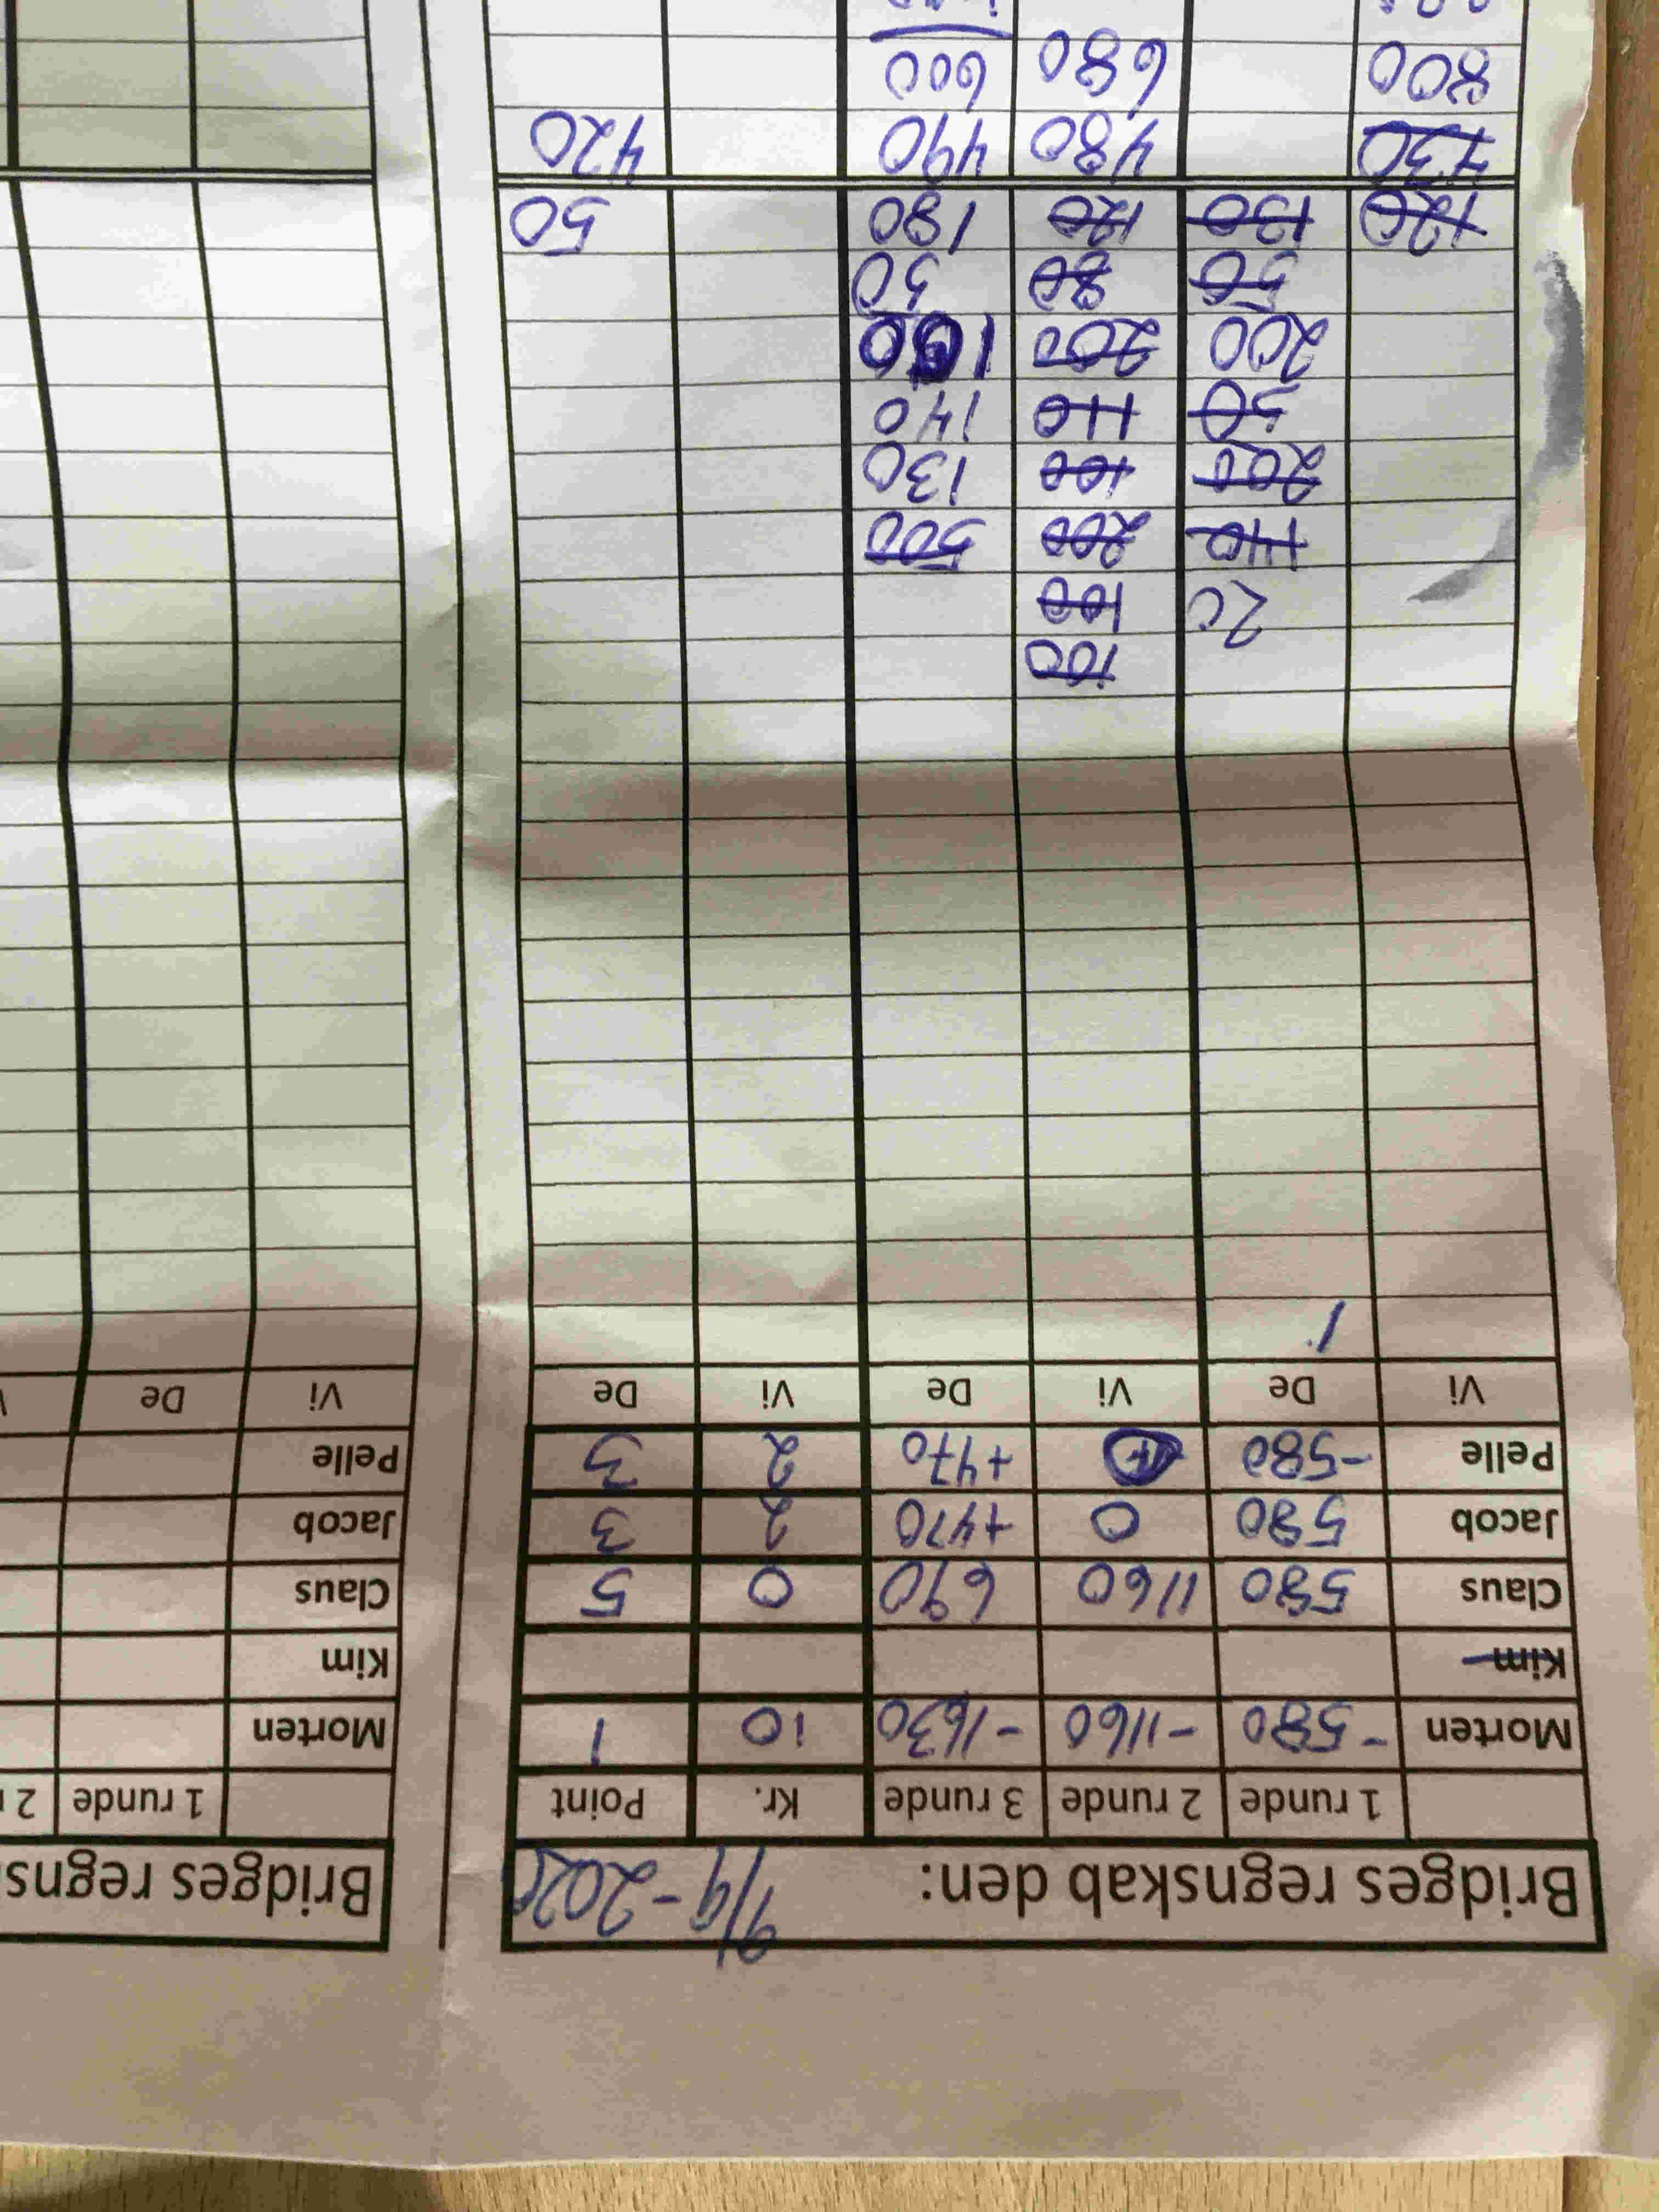 Bridges regnskab den: 9/9-2020 Bridges regns
1 runde 2 runde 3 runde Kr. Point 1 runde 2
Morten -580 -1160 -1630 10 1 Morten
Kim Kim
Claus 580 1160 690 0 5 Claus
Jacob 580 0 +470 2 3 Jacob
Pelle -580 +470 2 3 Pelle
Vi De Vi De Vi De Vi De
1
100
20 100
140 200 500
200 100 130
50 110 140
200 200 100
50 80 50
120 130 120 180 50
730 480 490 420
800 680 600